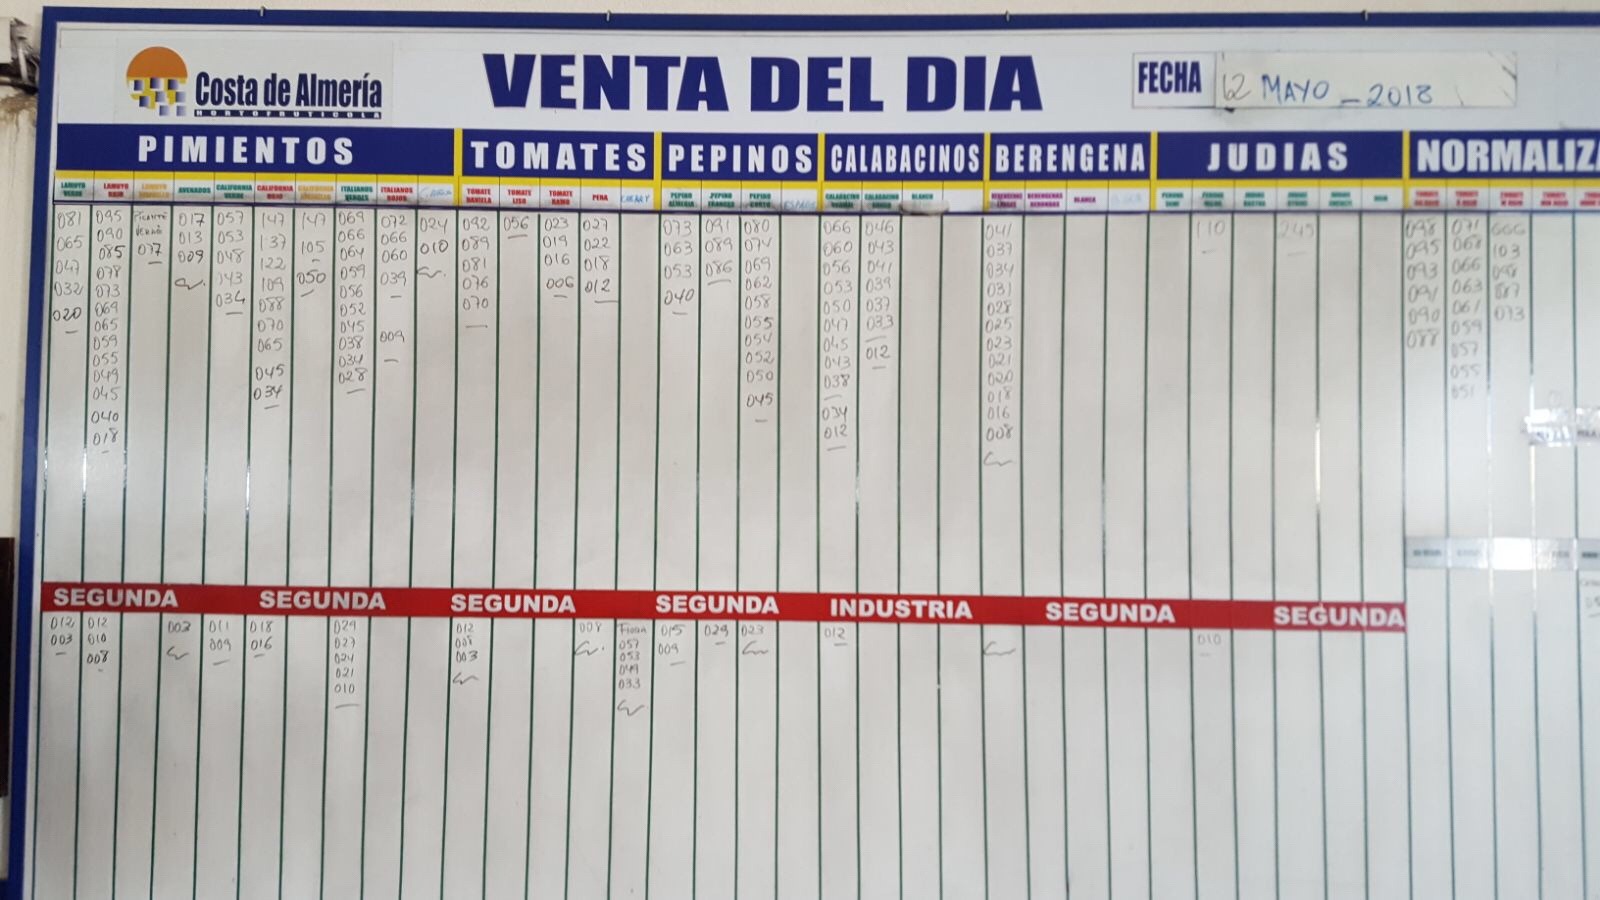 Costa de Almería
HORTOFRUTICOLA
VENTA DEL DIA
FECHA 12 MAYO - 2018
PIMIENTOS TOMATES PEPINOS CALABACINOS BERENGENA JUDIAS NORMALIZA
LAMUYO VERDE
081
065
047
032
020
LAMUYO ROJO
095
090
085
078
073
069
065
059
055
049
045
040
018
PICANTE
077
AVENADOS
017
013
009
CALIFORNIA VERDE
057
053
048
043
034
CALIFORNIA ROJO
147
137
122
109
088
070
065
045
034
CALIFORNIA AMARILLO
147
105
050
ITALIANOS VERDES
069
066
064
059
056
052
045
038
034
028
ITALIANOS ROJOS
072
066
060
039
009
024
010
TOMATE DANIELA
092
089
081
076
070
TOMATE LISO
056
TOMATE RAMO
023
019
016
006
PERA
027
022
018
012
CHERRY
PEPINO ALMERIA
073
063
053
040
PEPINO FRANCES
091
089
086
PEPINO CORTO
080
074
069
062
058
055
054
052
050
045
066
060
056
053
050
047
045
043
038
034
012
CALABACINO GORDO
046
043
041
039
037
033
012
BLANCO
041
037
034
031
028
025
023
021
020
018
016
008
BERENGENAS REDONDAS
BLANCA
110
245
098
095
093
091
090
088
071
068
066
063
061
059
057
055
051
103
073
SEGUNDA SEGUNDA SEGUNDA SEGUNDA INDUSTRIA SEGUNDA SEGUNDA
012
003
012
010
008
003
011
009
018
016
029
027
024
021
010
012
008
003
008
057
053
049
033
015
009
029
023
012
010